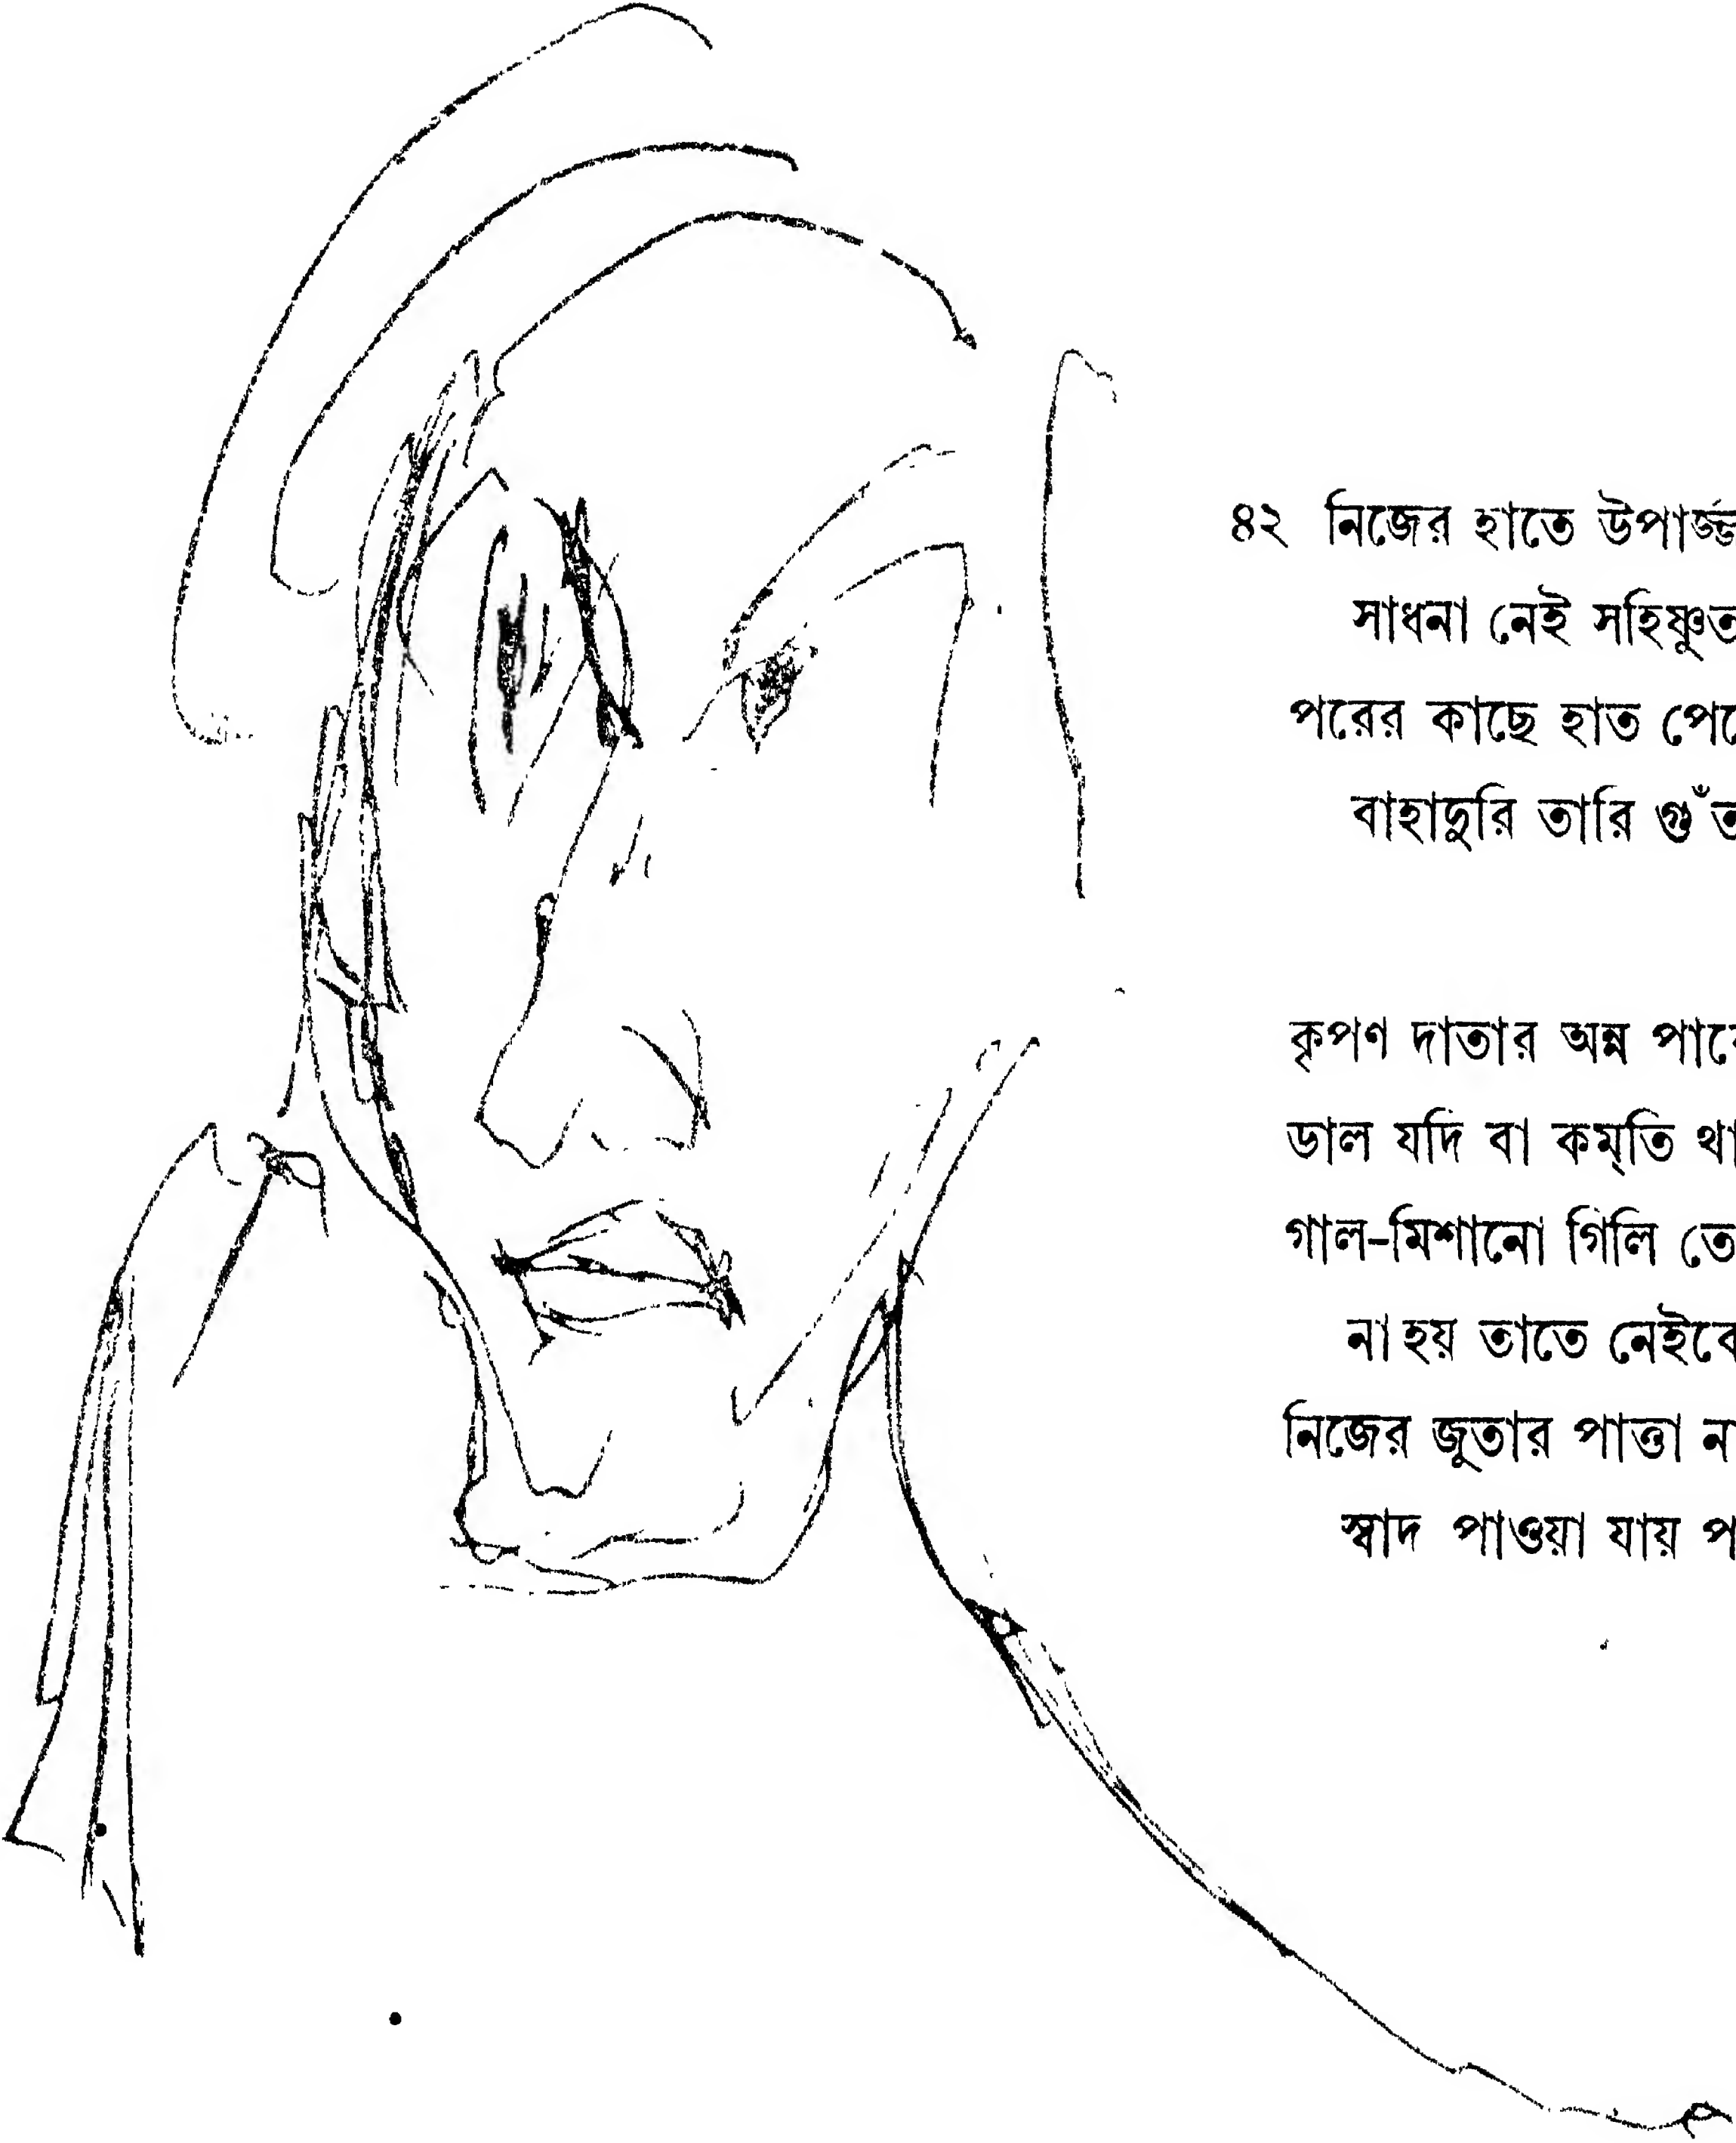 ৪২ নিজের হাতে উপার্জ্জ
সাধনা নেই সহিষ্ণুত
পরের কাছে হাত পে
বাহাদুরি তারি গুঁত
কৃপণ দাতার অন্ন পা
ডাল যদি বা কম্‌তি থা
গাল-মিশানো গিলি তে
না হয় তাতে নেই
নিজের জুতার পাত্তা ন
স্বাদ পাওয়া যায় প